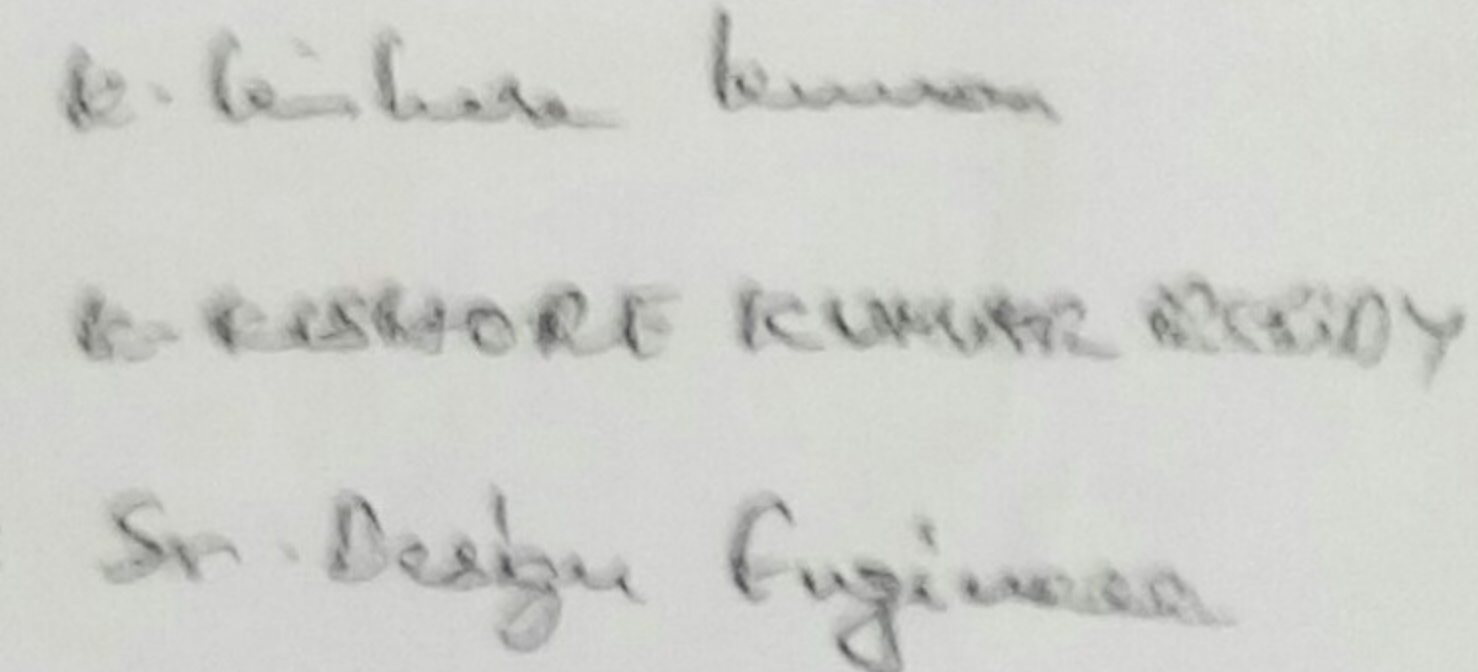 K. Kishore Kumar
K. KISHORE KUMAR REDDY
Sr. Design Engineer